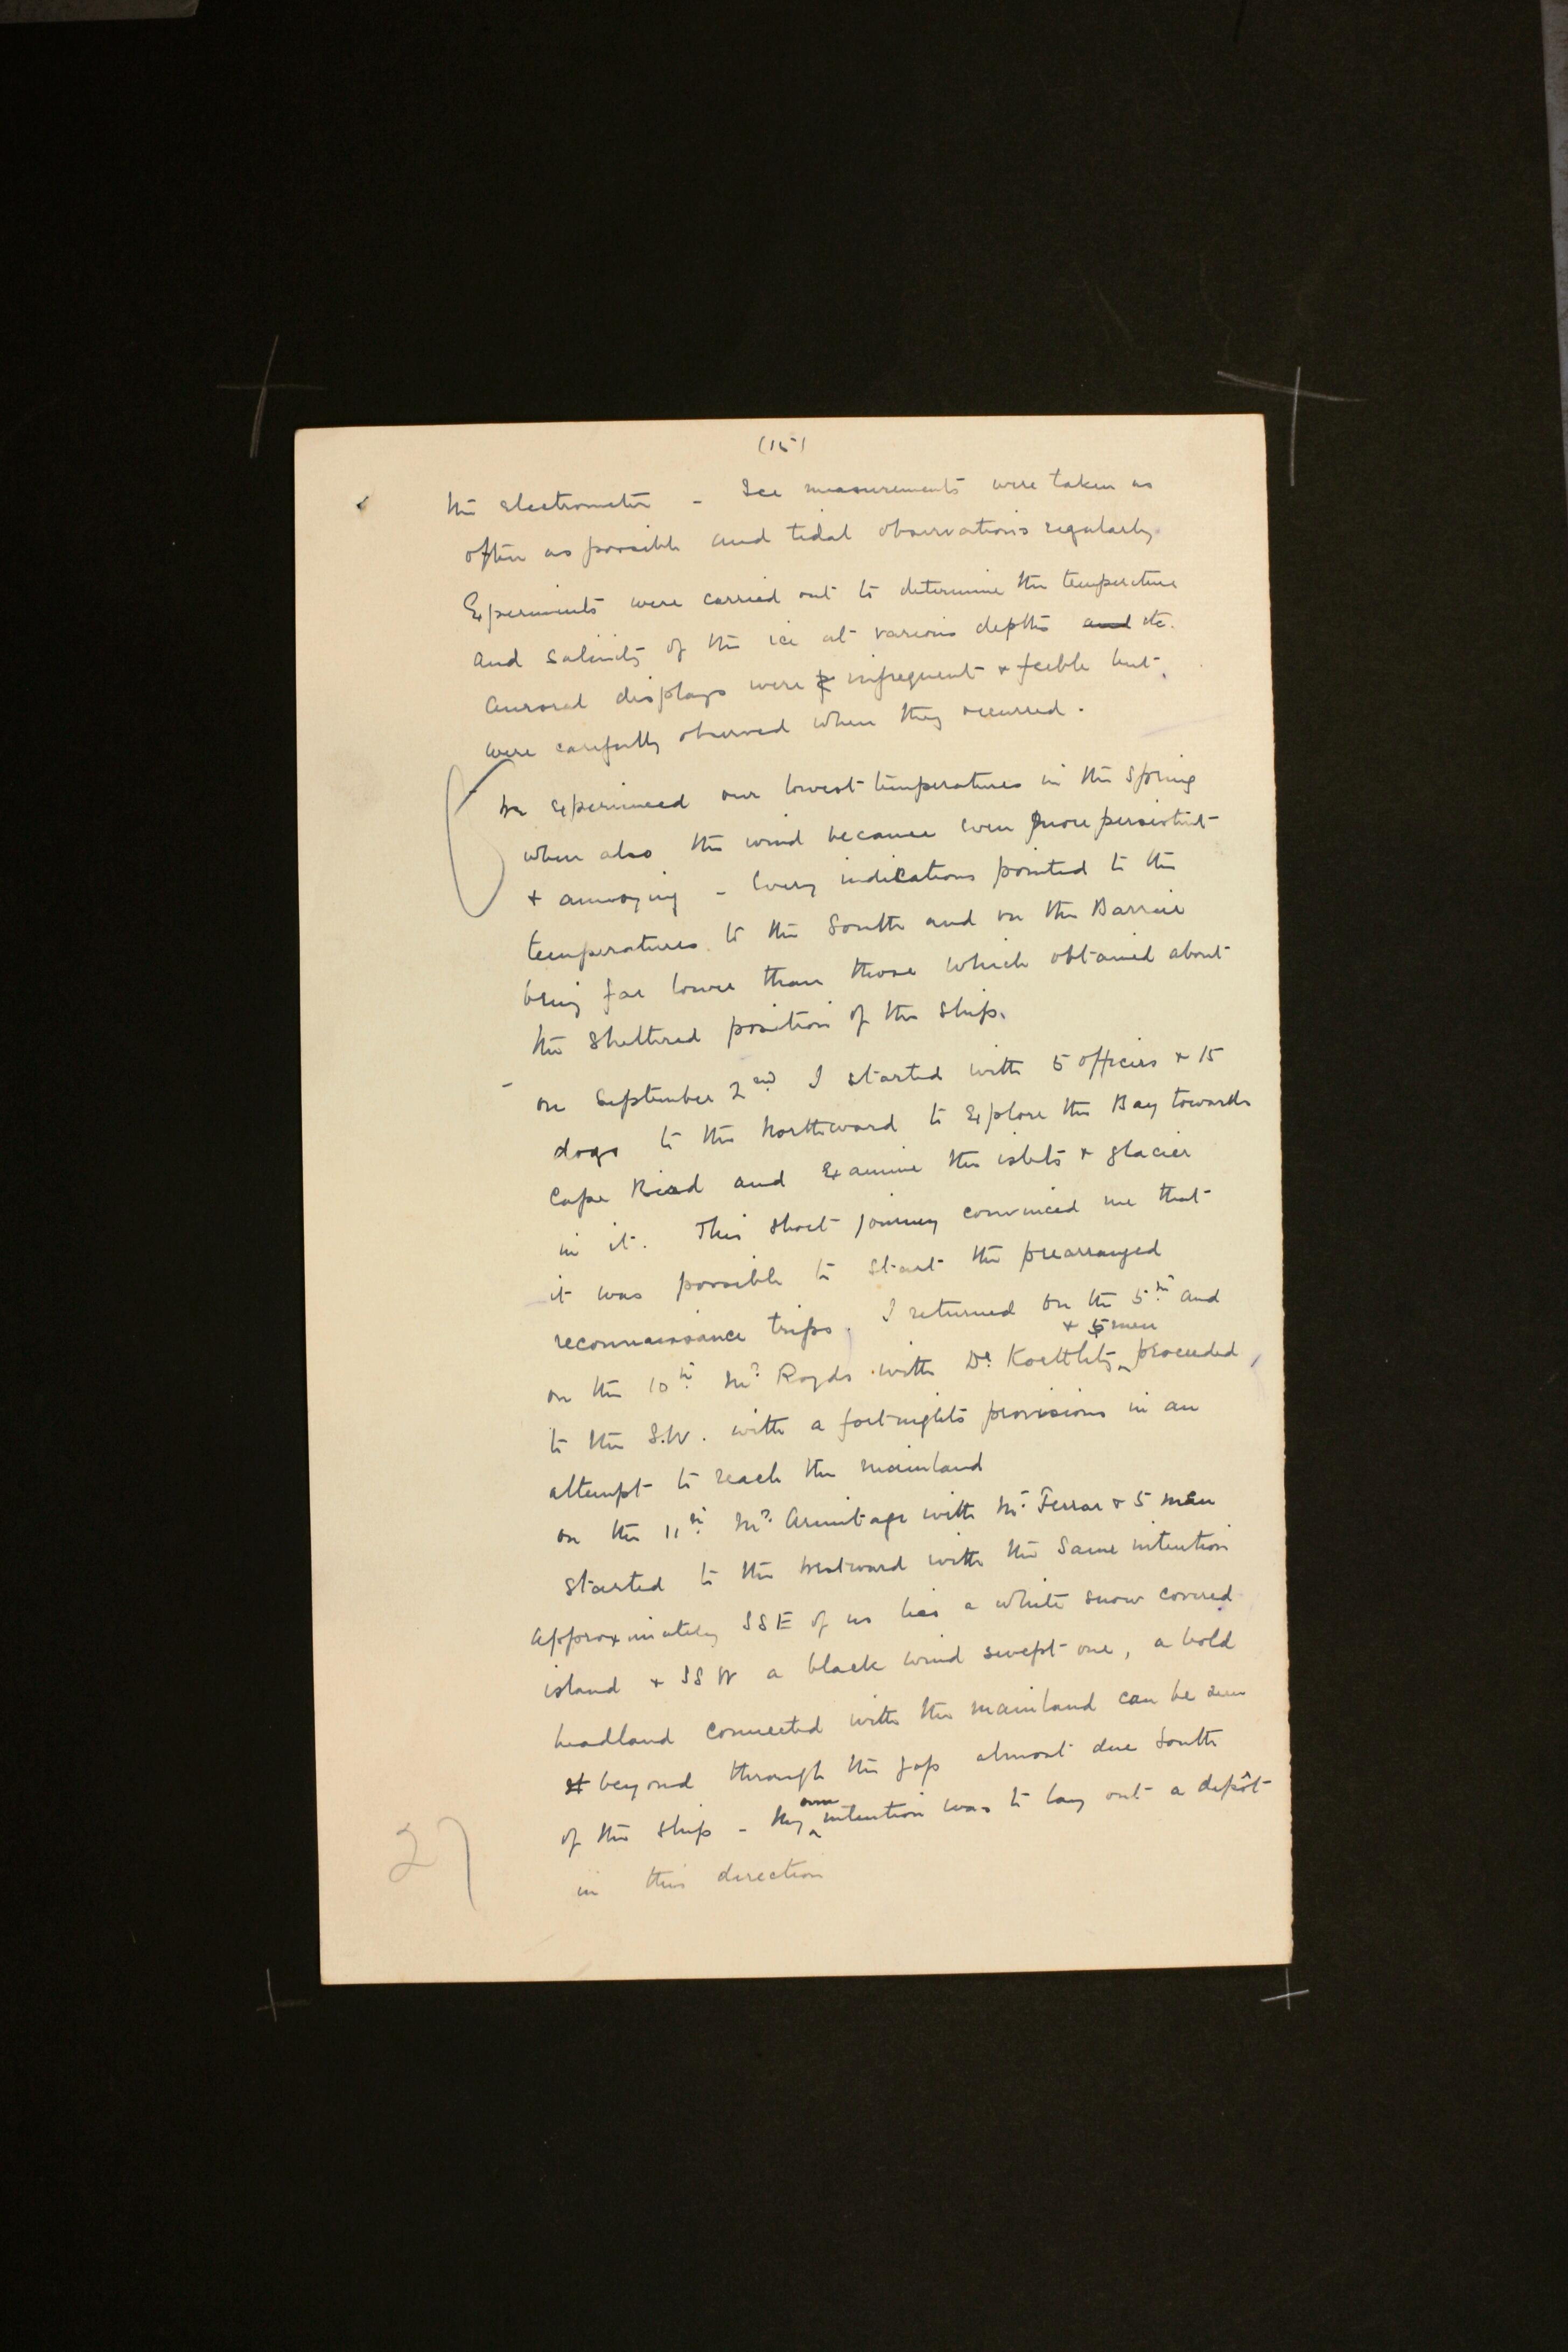 (15)
the electrometer - Ice measurements were taken as
often as possible and tidal observations regularly
Experiments were carried out to determine the temperature
and salinity of the ice at various depths and etc.
Auroral displays were infrequent + feeble but
were carefully observed when they occurred.
We experienced our lowest temperatures in the spring
when also the wind became even more persistent
+ annoying - Every indications pointed to the
temperatures to the South and on the Barrier
being far lower than those which obtained about
the sheltered position of the ship.
- on September 2nd I started with 5 officers + 15
dogs to the Northward to Explore the Bay towards
Cape Bird and Examine the islets + glacier
in it. This short journey convinced me that
it was possible to start the prearranged
reconnaissance trips. I returned on the 5th and
+ 5 men
on the 10th Mr Royds with Dr Koettlitz proceeded
to the S.W. with a fortnights provisions in an
attempt to reach the mainland
on the 11th Mr Armitage with Mr Ferrar + 5 men
started to the westward with the same intention
Approximately SSE of us lies a white snow covered
island + SSW a black wind swept one, a bold
headland connected with the mainland can be seen
beyond through the gap almost due South
own
of the ship - My intention was to lay out a depôt
in this direction
27